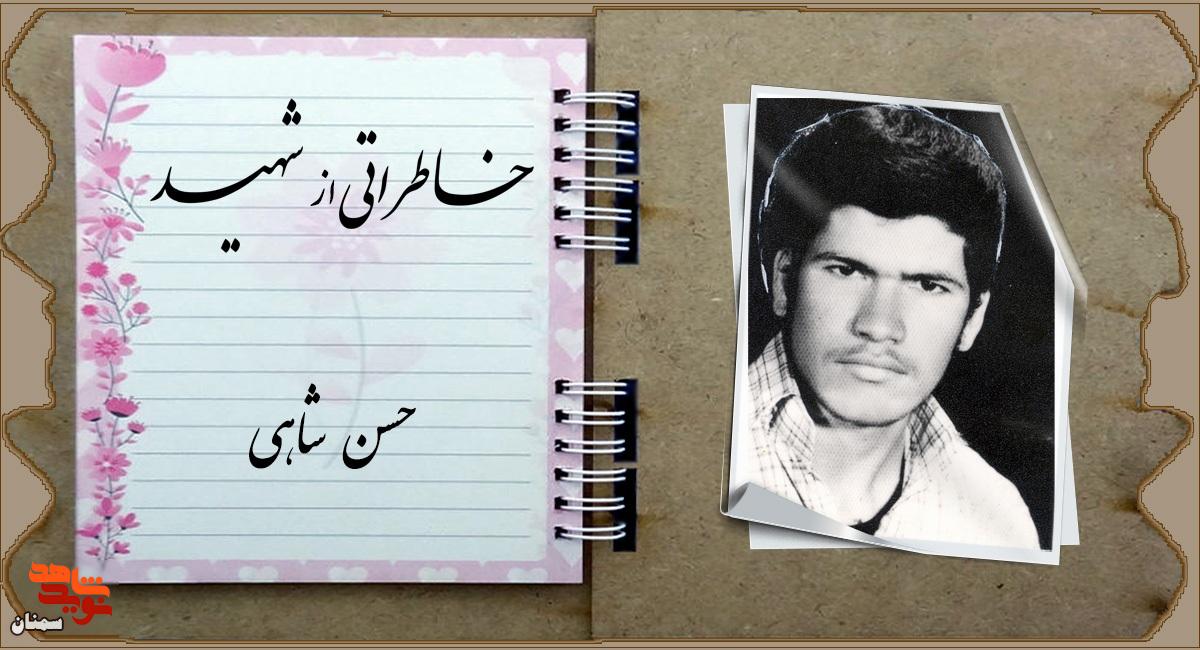 خاطراتی از شهید
حسن شاهی
نوید شاهد
سمنان